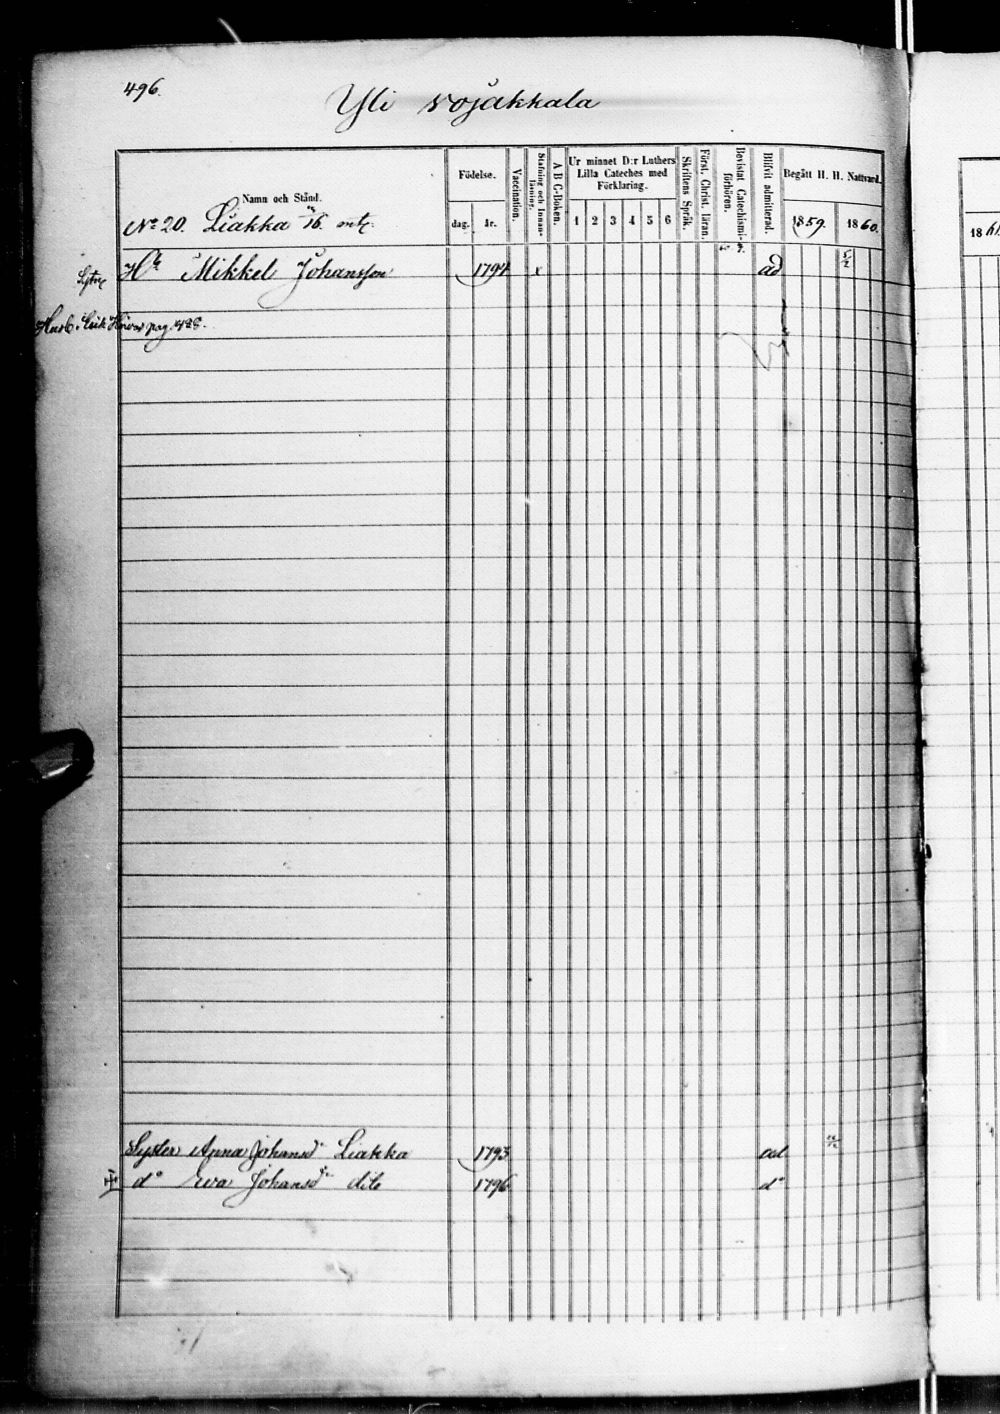 496.
Yli rojakkala
Namn och Stånd.
Födelse.
dag. år.
Vaccination.
Stafning och Innan-läsning.
A B C-Boken.
Ur minnet D:r Luthers Lilla Cateches med Förklaring.
1 2 3 4 5 6
Skriftens Språk.
Först. Christ. läran.
Bevistat Catechismi-förhören.
Blifvit admitterad.
Begått H. H. Nattvard.
1859. 1860.
186
No 20. Liakka mtl.
Mikkel Johansson 1794 x ad
pag. 428.
Syster Anna Johansd:r Liakka 1793 ad
d:o Eva Johansd:r dito 1796 d:o